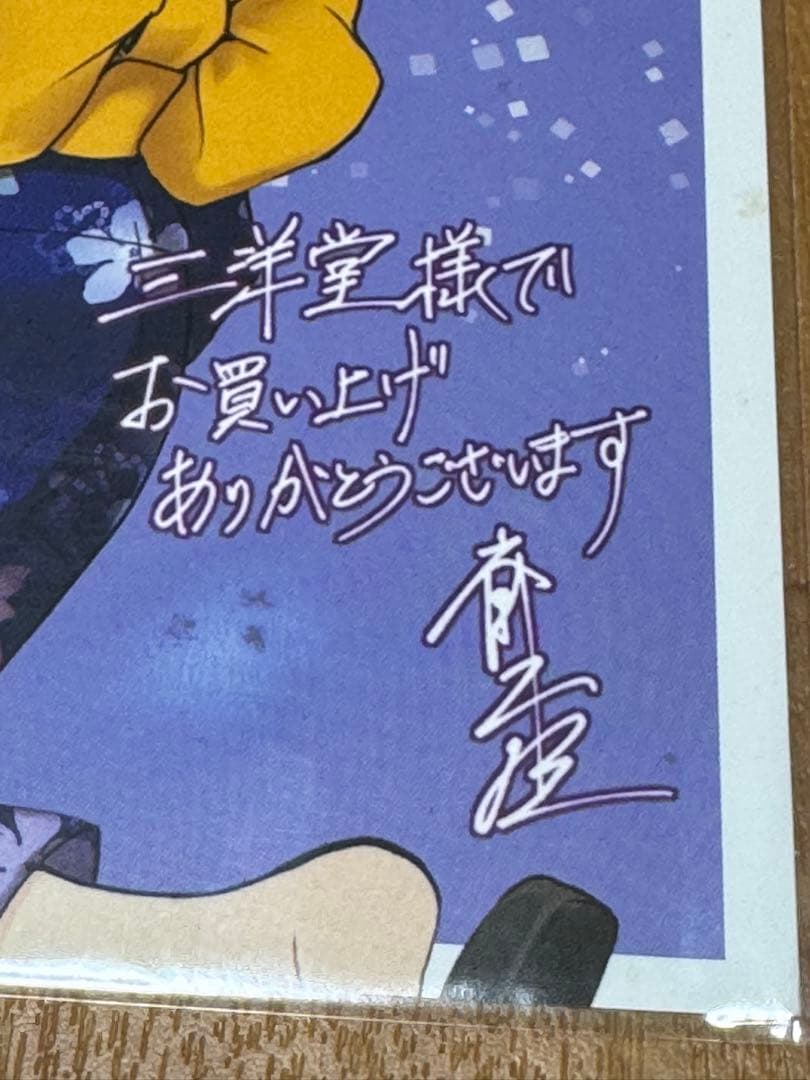 三洋堂様で
お買い上げ
ありがとうございます